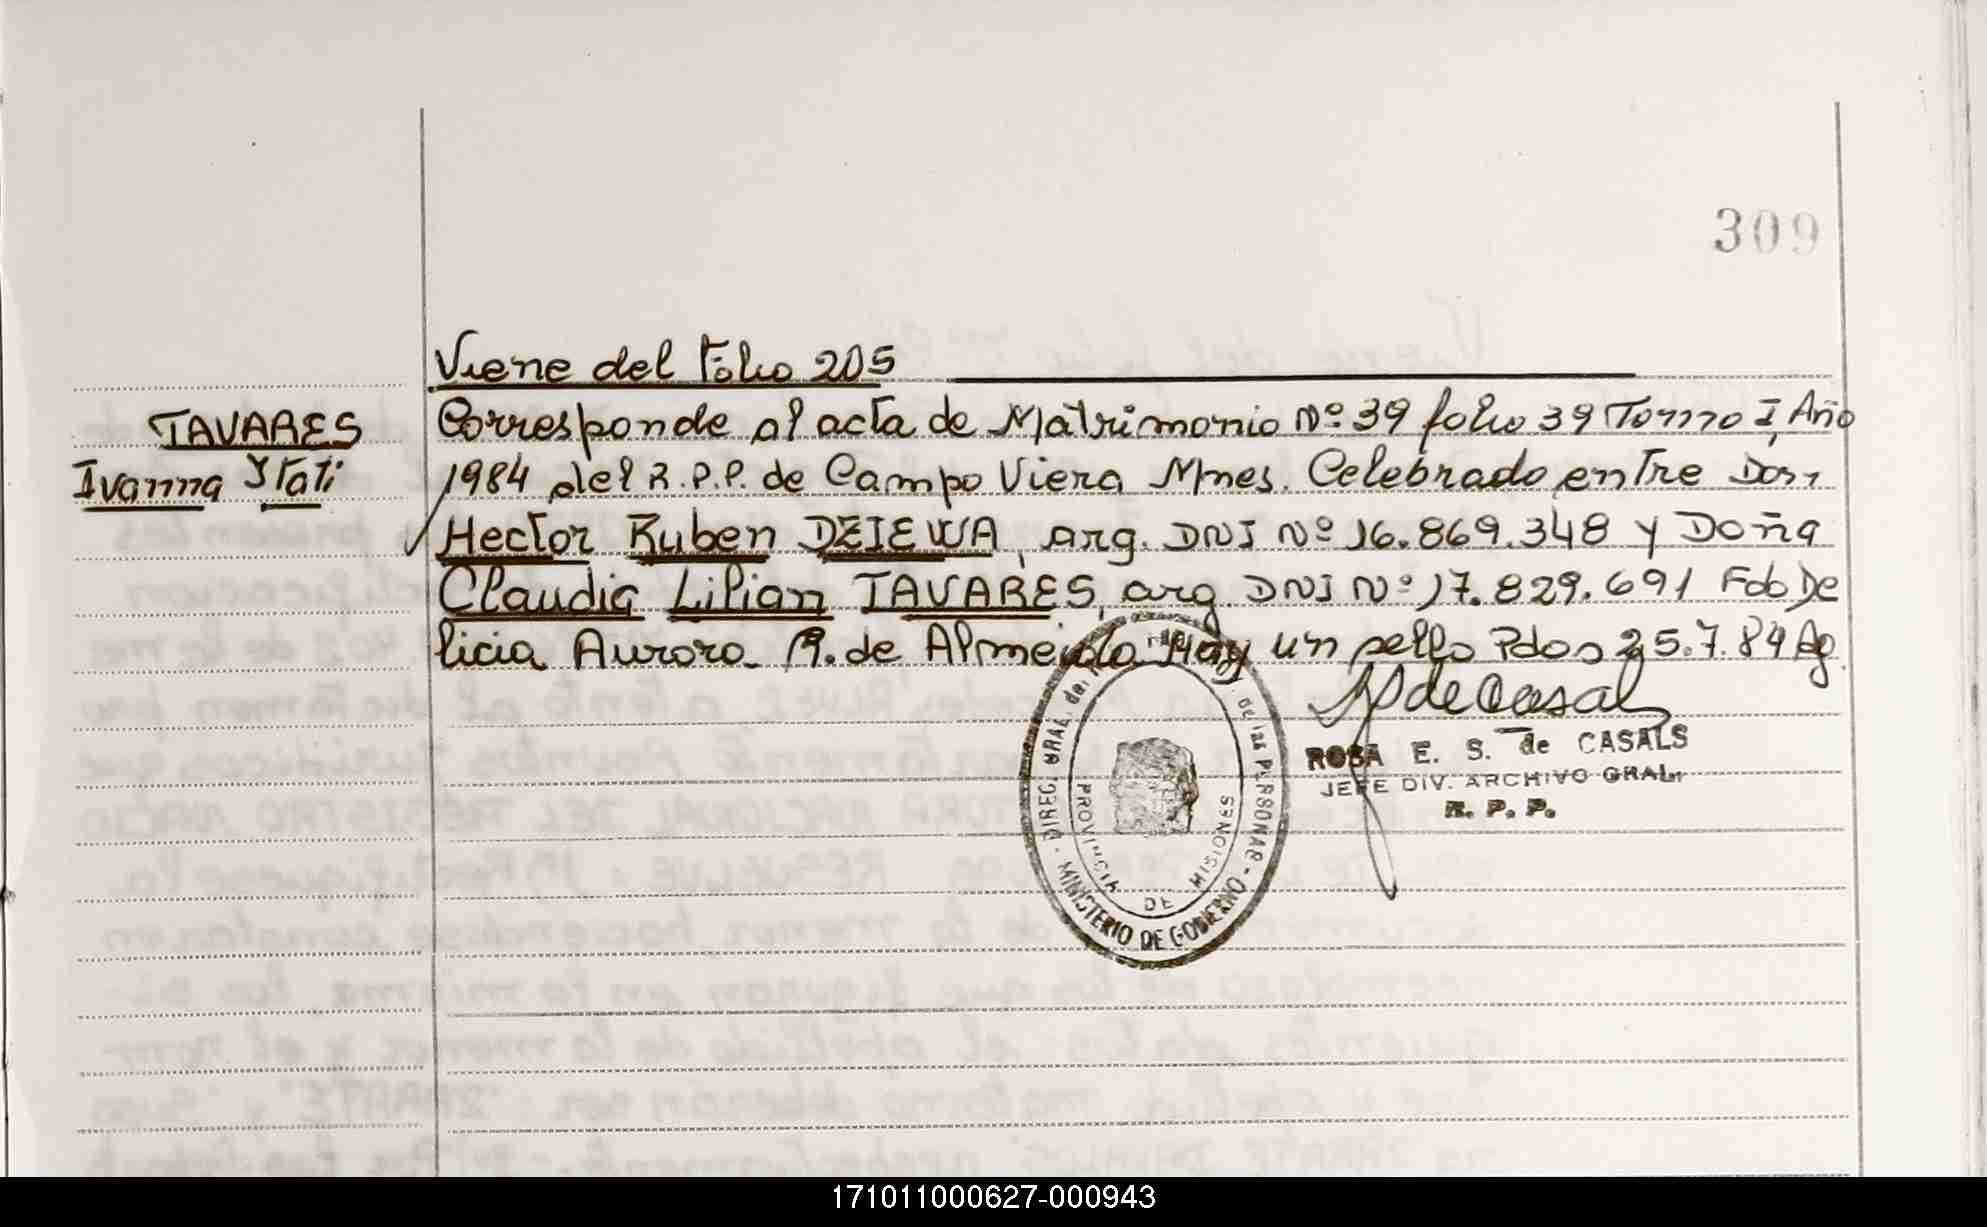 309
Viene del Folio 205
TAVARES
Ivanna Itati
Corresponde al acta de Matrimonio Nº 39 folio 39 Tomo I, Año
1984 del R.P.P. de Campo Viera Mnes. Celebrado entre Don
Hector Ruben DZIEWA, arg. DNI Nº 16.869.348 y Doña
Claudia Lilian TAVARES, arg. DNI Nº 17.829.691 Fdo De
licia Aurora R. de Almeida Hay un sello Pdas 25.7.84
ROSA E. S. de CASALS
JEFE DIV. ARCHIVO GRAL.
R. P. P.
PROVINCIA DE MISIONES
MINISTERIO DE GOBIERNO
171011000627-000943